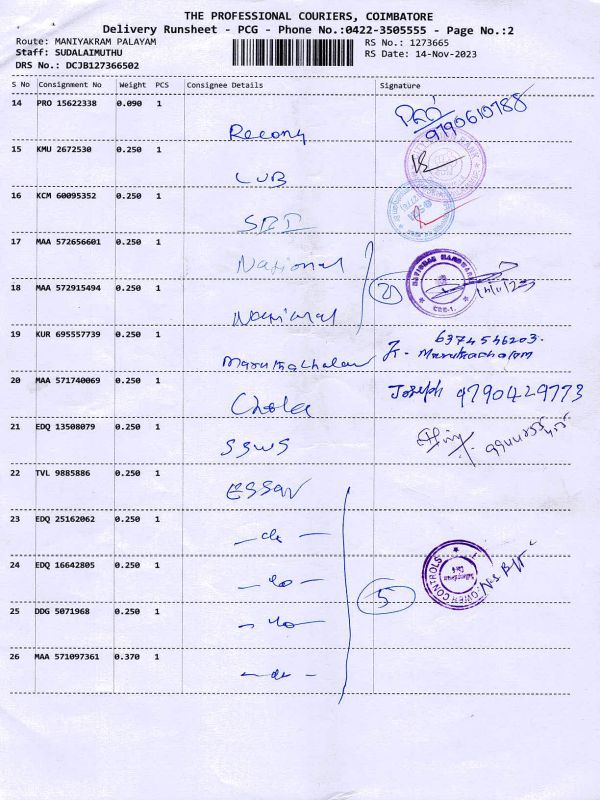 THE PROFESSIONAL COURIERS, COIMBATORE
Delivery Runsheet - PCG - Phone No.:0422-3505555 - Page No.:2
Route: MANIYAKRAM PALAYAM
RS No.: 1273665
Staff: SUDALAIMUTHU
RS Date: 14-Nov-2023
DRS No.: DCJB127366502
S No Consignment No Weight PCS Consignee Details Signature
14 PRO 15622338 0.090 1
9790610788
15 KMU 2672530 0.250 1
LUB
16 KCM 60095352 0.250 1
SBI
17 MAA 572656601 0.250 1
National
18 MAA 572915494 0.250 1
National
2
NATIONAL HARDWARE
CBE-1.
19 KUR 695557739 0.250 1
Marutachalam
6374546203.
K. Marutachalam
20 MAA 571740069 0.250 1
Chola
Joseph 9790429773
21 EDQ 13508079 0.250 1
SSWS
22 TVL 9885886 0.250 1
ESSAR
23 EDQ 25162062 0.250 1
- do -
24 EDQ 16642805 0.250 1
- do -
5
25 DDG 5071968 0.250 1
- do -
26 MAA 571097361 0.370 1
- do -